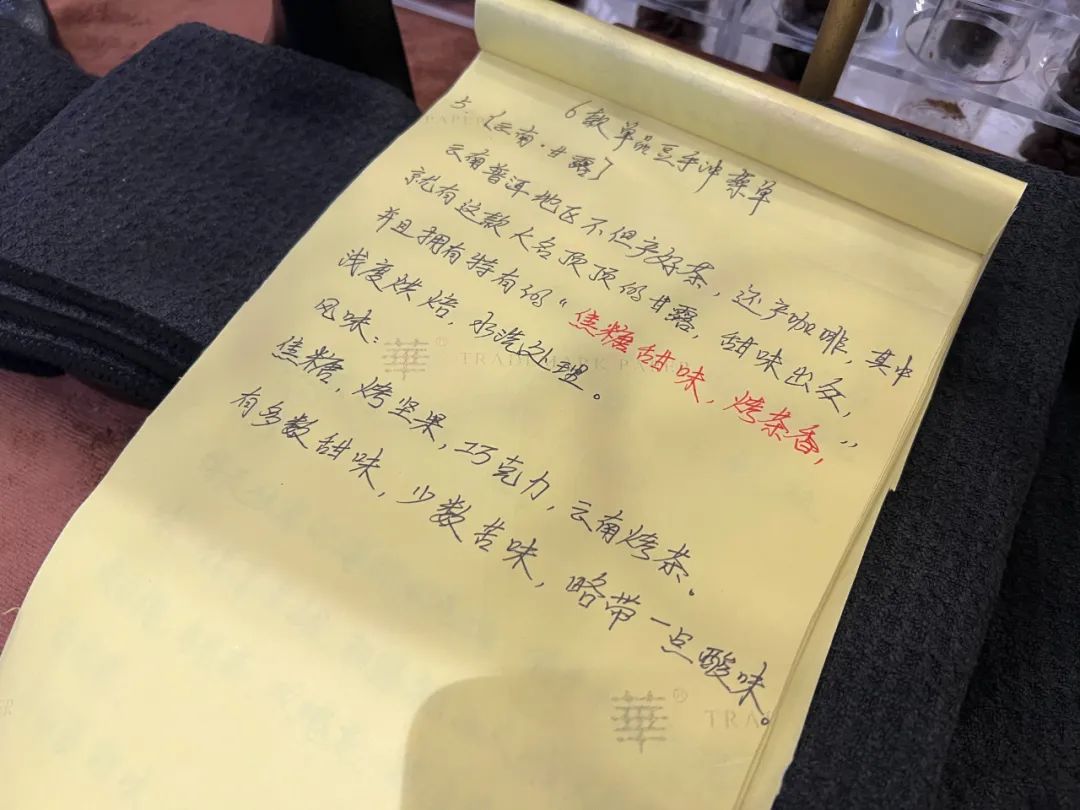 6款单品豆手冲菜单
5.《云南·甘露》
云南普洱地区不但产好茶，还产咖啡，其中
就有这款大名顶顶的甘露，甜味出众，
并且拥有特有的“焦糖甜味，烤茶香，”
浅度烘焙，水洗处理。
风味：
焦糖，烤坚果，巧克力，云南烤茶。
有多数甜味，少数苦味，略带一点酸味。
PAPER
華® TRADEMARK PAPER
華® TRA